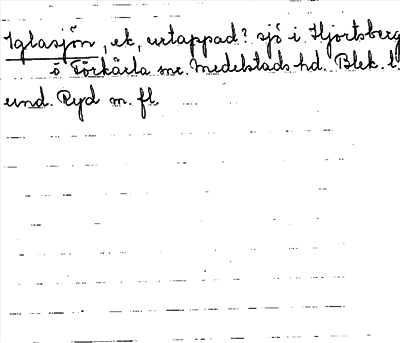 Iglasjön, ek, urtappad? sjö i Hjortsberg
ö Förkärla sn. Medelstads hd. Blek. l.
und. Ryd m. fl.